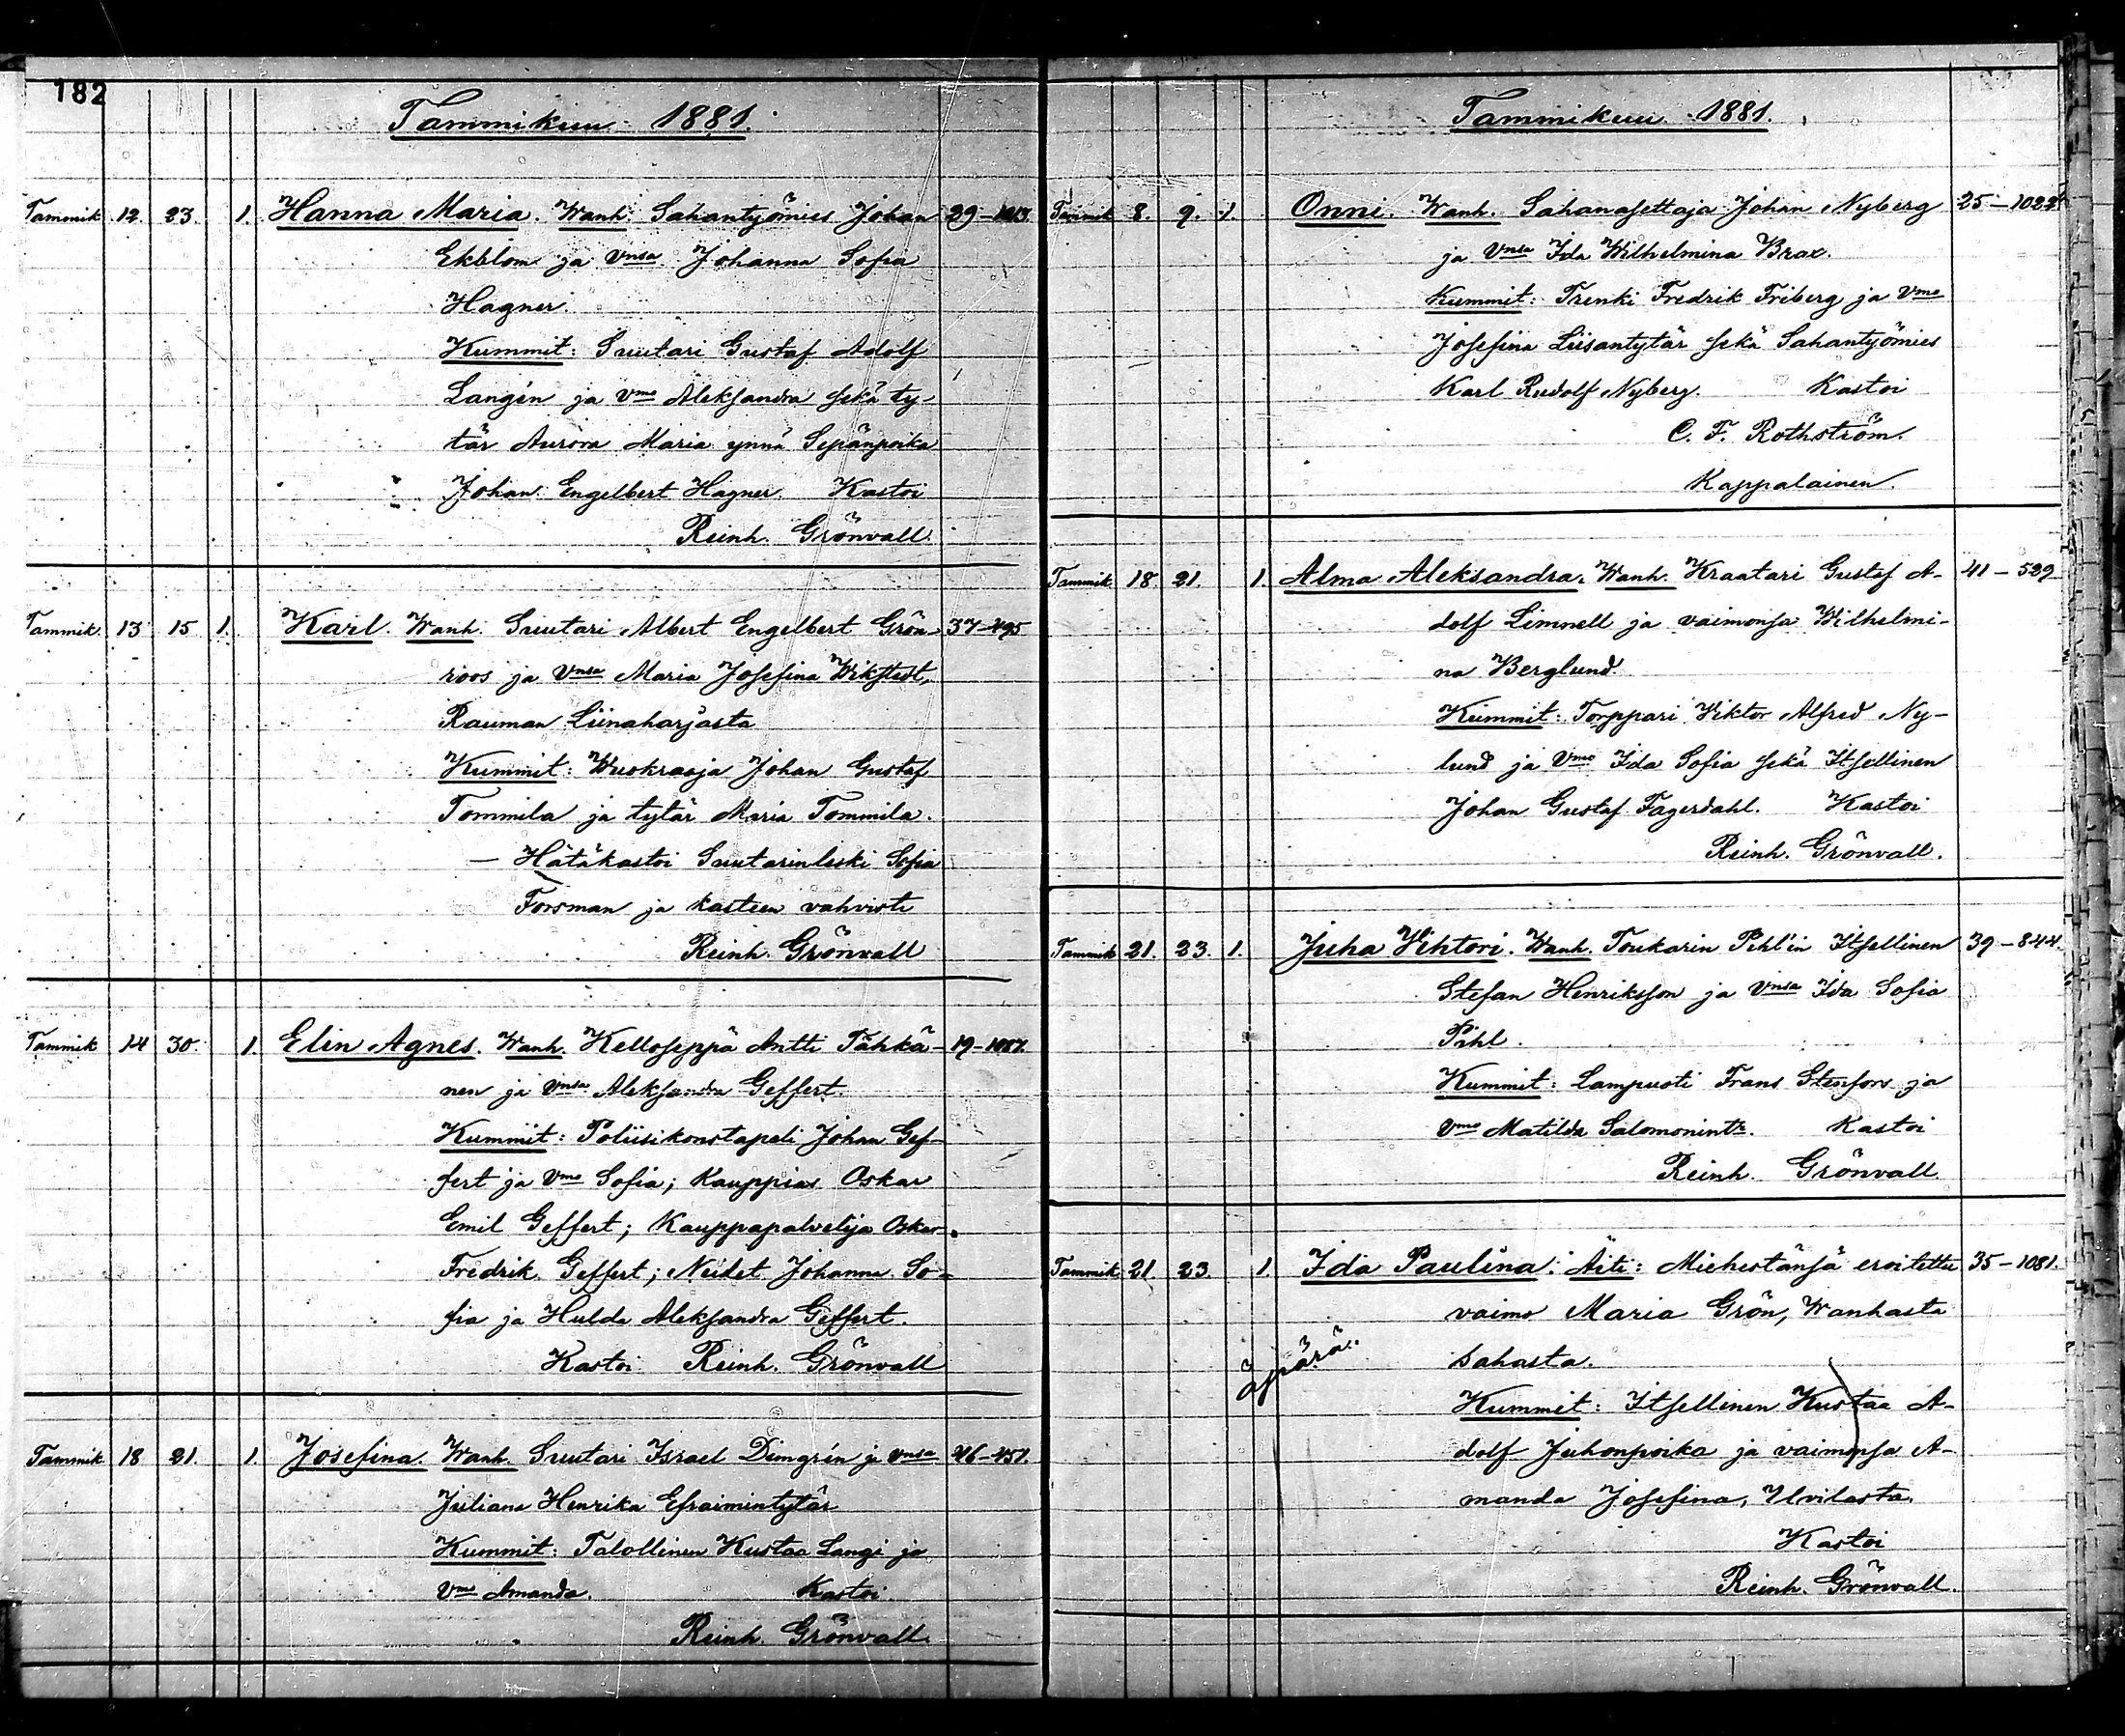 182
Tammikuu 1881.
Tammik 12. 23. 1. Hanna Maria. Wanh: Sahantyömies Johan 29-1013.
Ekblom ja Vnsa Johanna Sofia
Hagner.
Kummit: Suutari Gustaf Adolf
Langén ja Vmo Aleksandra sekä ty-
tär Aurora Maria ynnä Sepänpoika
Johan Engelbert Hagner. Kastoi
Reinh. Grönvall.
Tammik. 13 15 1. Karl. Wanh. Suutari Albert Engelbert Grön- 37-495
roos ja Vnsa Maria Josefina Wikstedt,
Rauman Liinaharjasta
Kummit: Wuokraaja Johan Gustaf
Tommila ja tytär Maria Tommila.
— Hätäkastoi Suutarinleski Sofia
Forsman ja kasteen vahvisti
Reinh. Grönvall
Tammik 14 30. 1. Elin Agnes. Wanh. Kelloseppä Antti Tähkä- 19-1087.
nen ja Vnsa Aleksandra Geffert.
Kummit: Poliisikonstapeli Johan Gef-
fert ja Vmo Sofia; Kauppias Oskar
Emil Geffert; Kauppapalvelija Oskar
Fredrik Geffert; Neidet Johanna So-
fia ja Hulda Aleksandra Geffert.
Kastoi Reinh. Grönvall
Tammik 18 21. 1. Josefina. Wanh. Suutari Israel Dimgrén ja Vnsa 46-451.
Juliana Henrika Efraimintytär
Kummit: Talollinen Kustaa Langi ja
Vmo Amanda. Kastoi.
Reinh. Grönvall.
Tammikuu 1881.
Tammik 8. 9. 1. Onni. Wanh. Sahanasettaja Johan Nyberg 25-1022
ja Vnsa Ida Wilhelmina Brax.
Kummit: Trenki Fredrik Friberg ja Vmo
Josefina Liisantytär sekä Sahantyömies
Karl Rudolf Nyberg. Kastoi
C. F. Rothström.
Kappalainen.
Tammik 18. 21. 1. Alma Aleksandra. Wanh. Kraatari Gustaf A- 41-529
dolf Limnell ja vaimonsa Wilhelmi-
na Berglund.
Kummit: Torppari Viktor Alfred Ny-
lund ja Vmo Ida Sofia sekä Itsellinen
Johan Gustaf Fagerdahl. Kastoi
Reinh. Grönvall.
Tammik 21. 23. 1. Juha Vihtori. Wanh. Toukarin Pihl'in Itsellinen 39-844.
Stefan Henriksson ja Vnsa Ida Sofia
Pihl.
Kummit: Lampuoti Frans Stenfors ja
Vmo Matilda Salomonintr. Kastoi
Reinh. Grönvall.
Tammik 21. 23. 1. Ida Paulina. Äiti: Miehestänsä eroitettu 35-1081.
vaimo Maria Grön, Wanhasta
äpärä. sahasta.
Kummit: Itsellinen Kustaa A-
dolf Juhonpoika ja vaimonsa A-
manda Josefina, Ulvilasta.
Kastoi
Reinh. Grönvall.